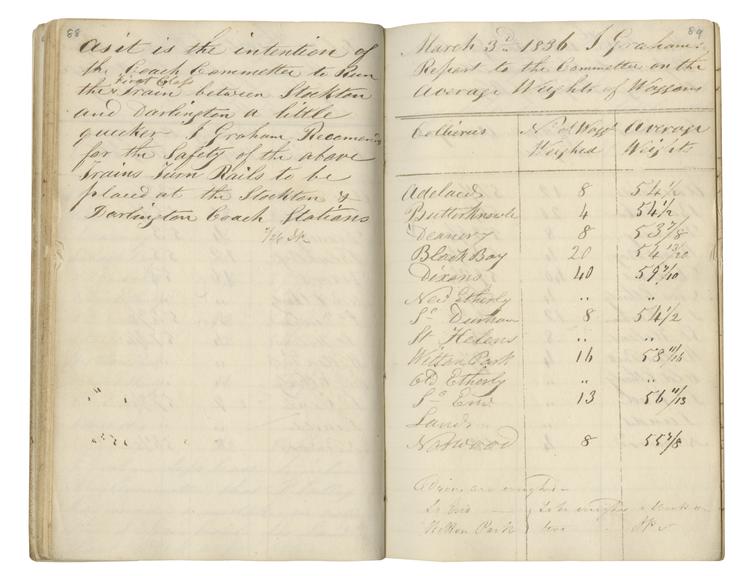 88
As it is the intention of
the Coach Committee to Run
First Class
the Train between Stockton
and Darlington a little
quicker I Graham Recomends
for the Safety of the above
Trains Turn Rails to be
placed at the Stockton &
Darlington Coach Stations
89
March 3rd 1836 I Grahams
Report to the Committee on the
Average Weights of Waggons
Collieries No of Wagg Average
Weighed Weights
Adelaide 8 54 1/2
Butterknowle 4 54 1/2
Deanery 8 53 7/8
Black Boy 20 54 13/20
Dixons 40 59 9/10
New Etherly " "
So Durham 8 54 1/2
St Helens " "
Witton Park 16 58 11/16
Old Etherly " "
So 13 56 11/13
Lands
Norwood 8 55 7/8
Witton Park